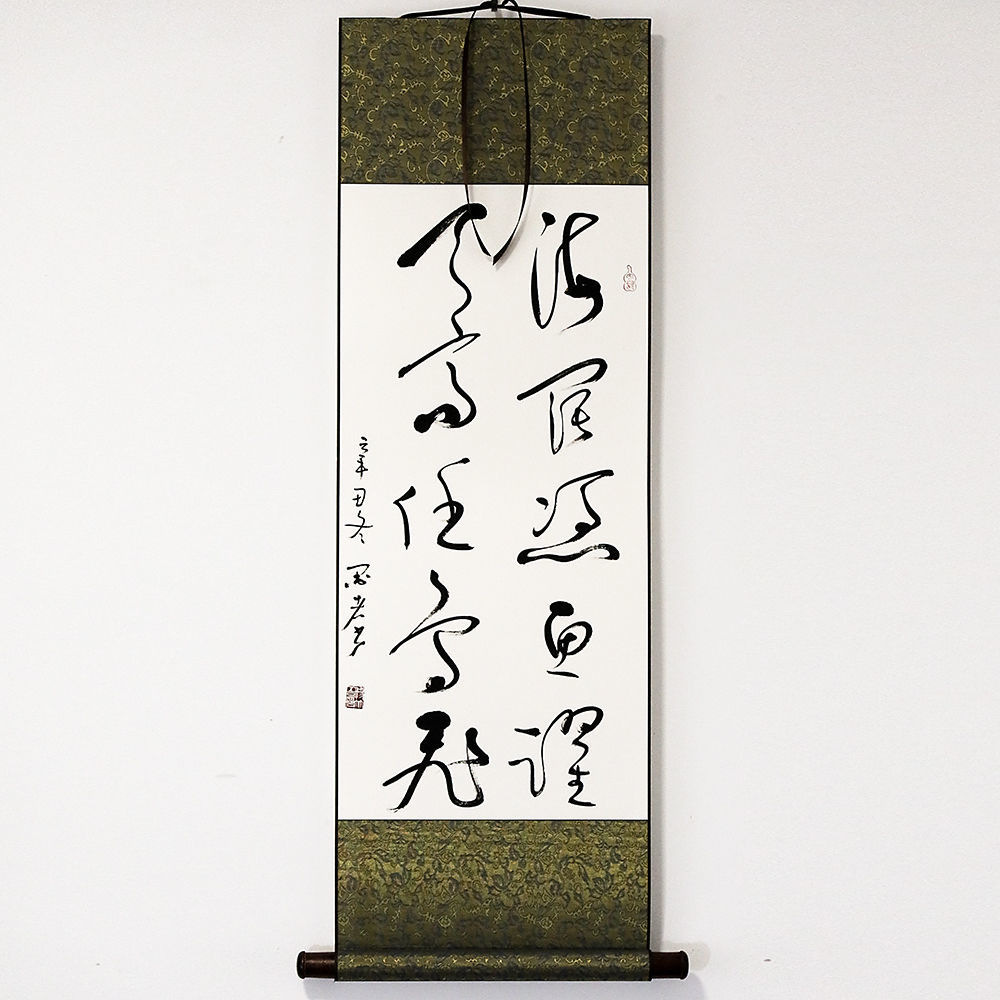 海阔凭鱼跃
天高任鸟飞
辛丑冬